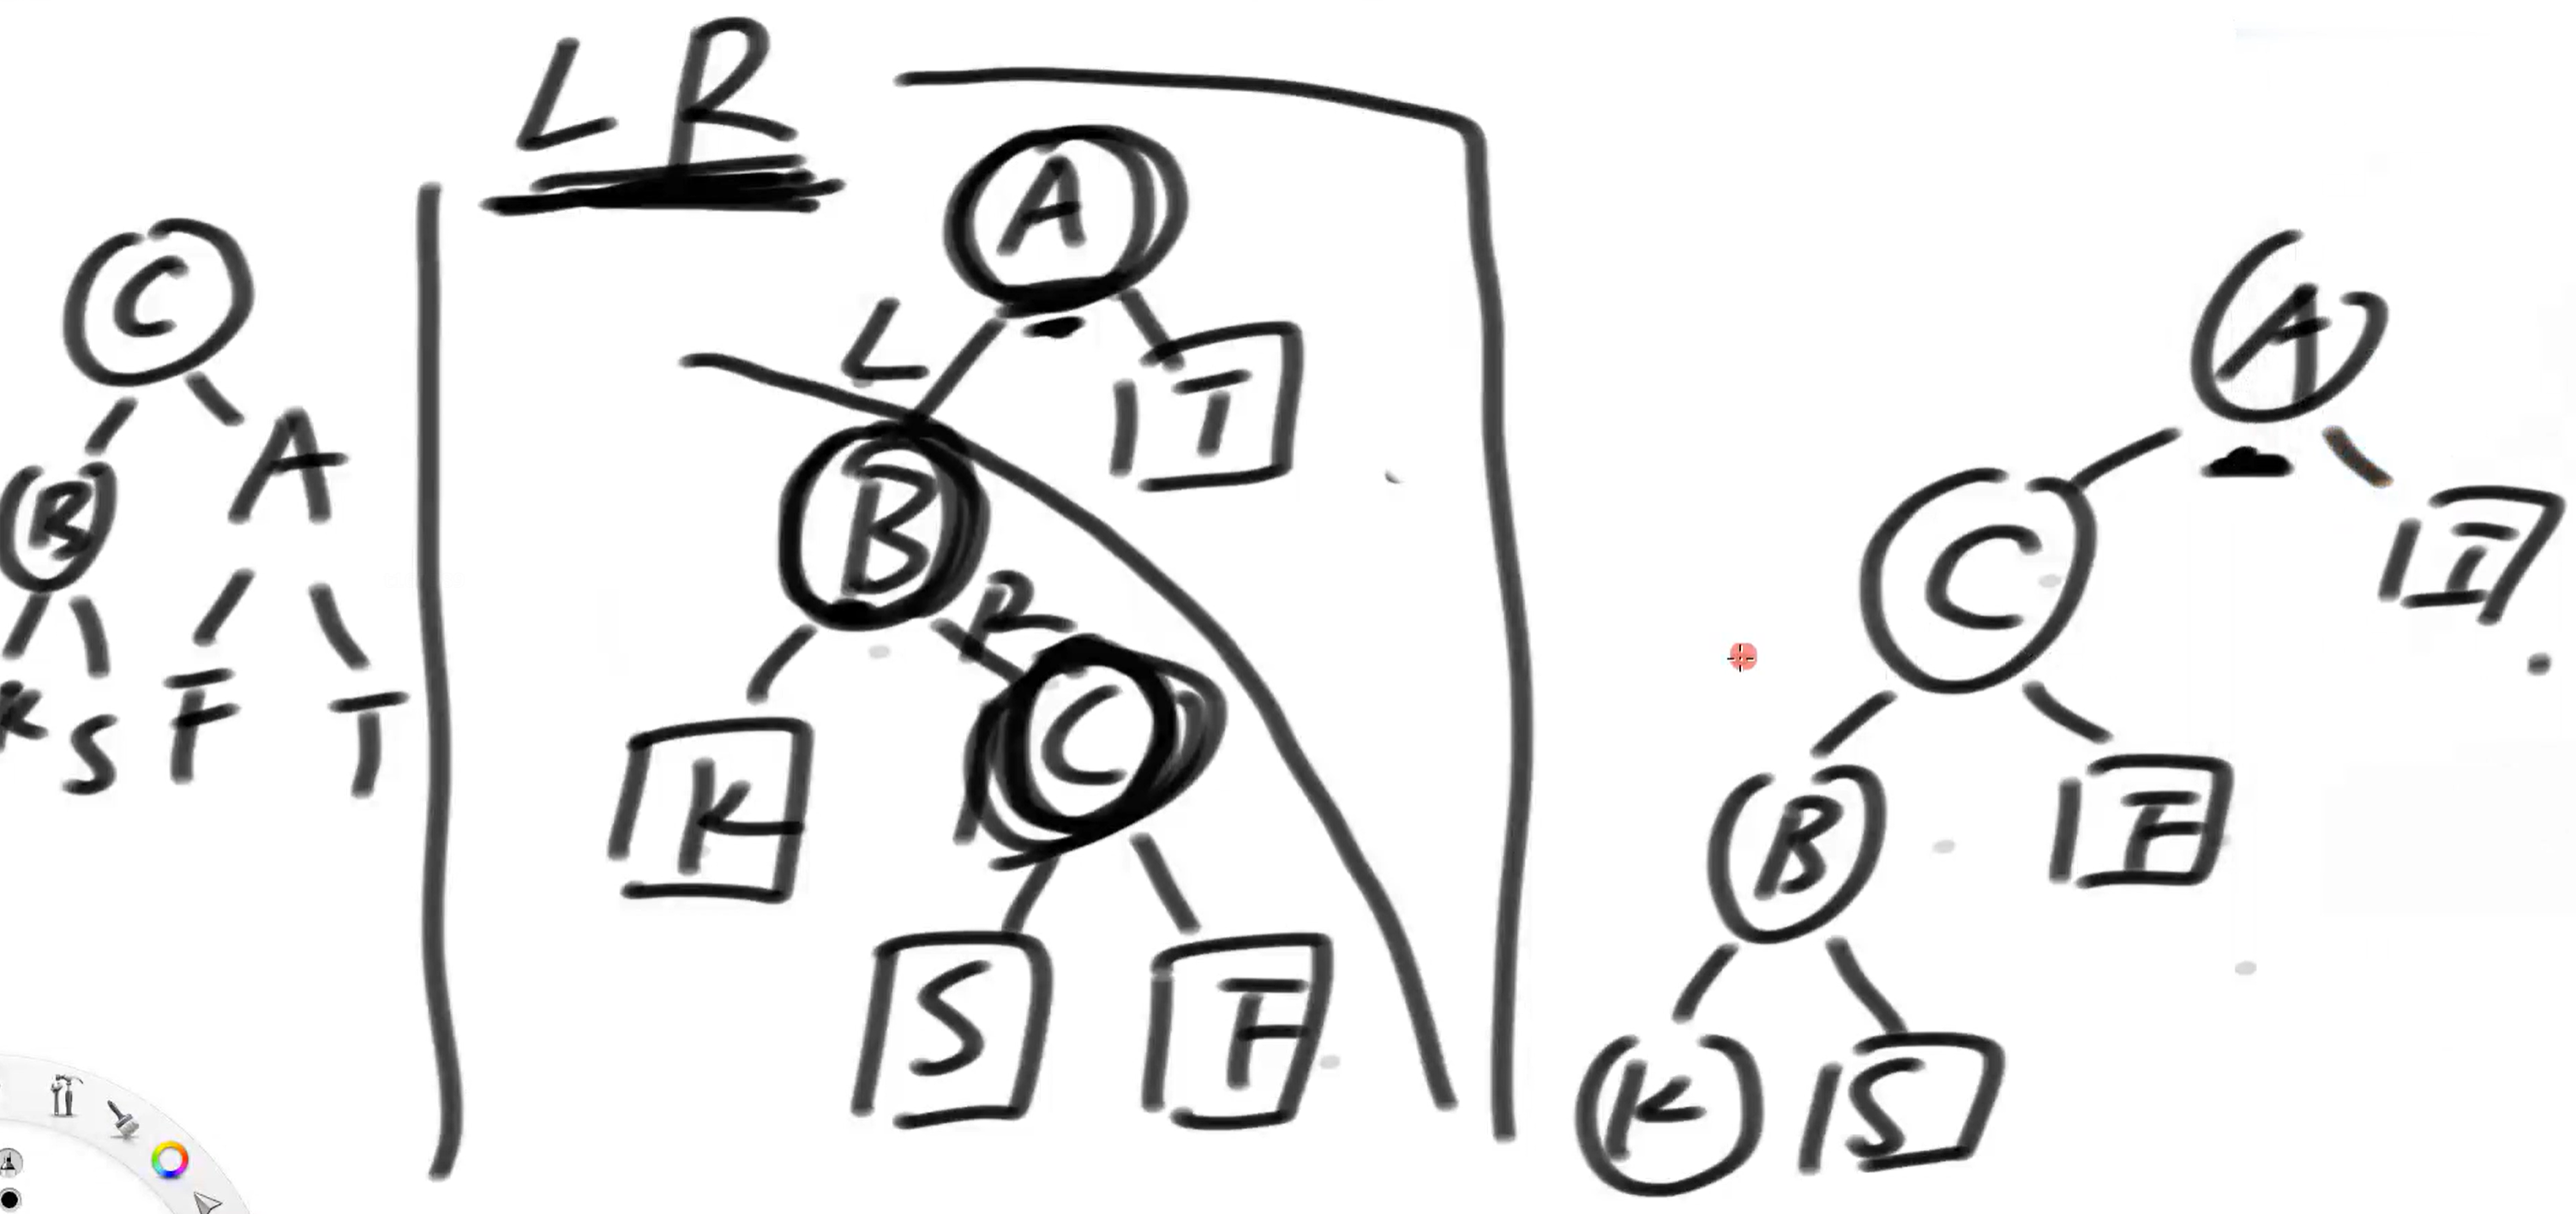 L R
C
B A
K S F T
A
L
T
B
R
K C
S F
A
C T
B F
K S